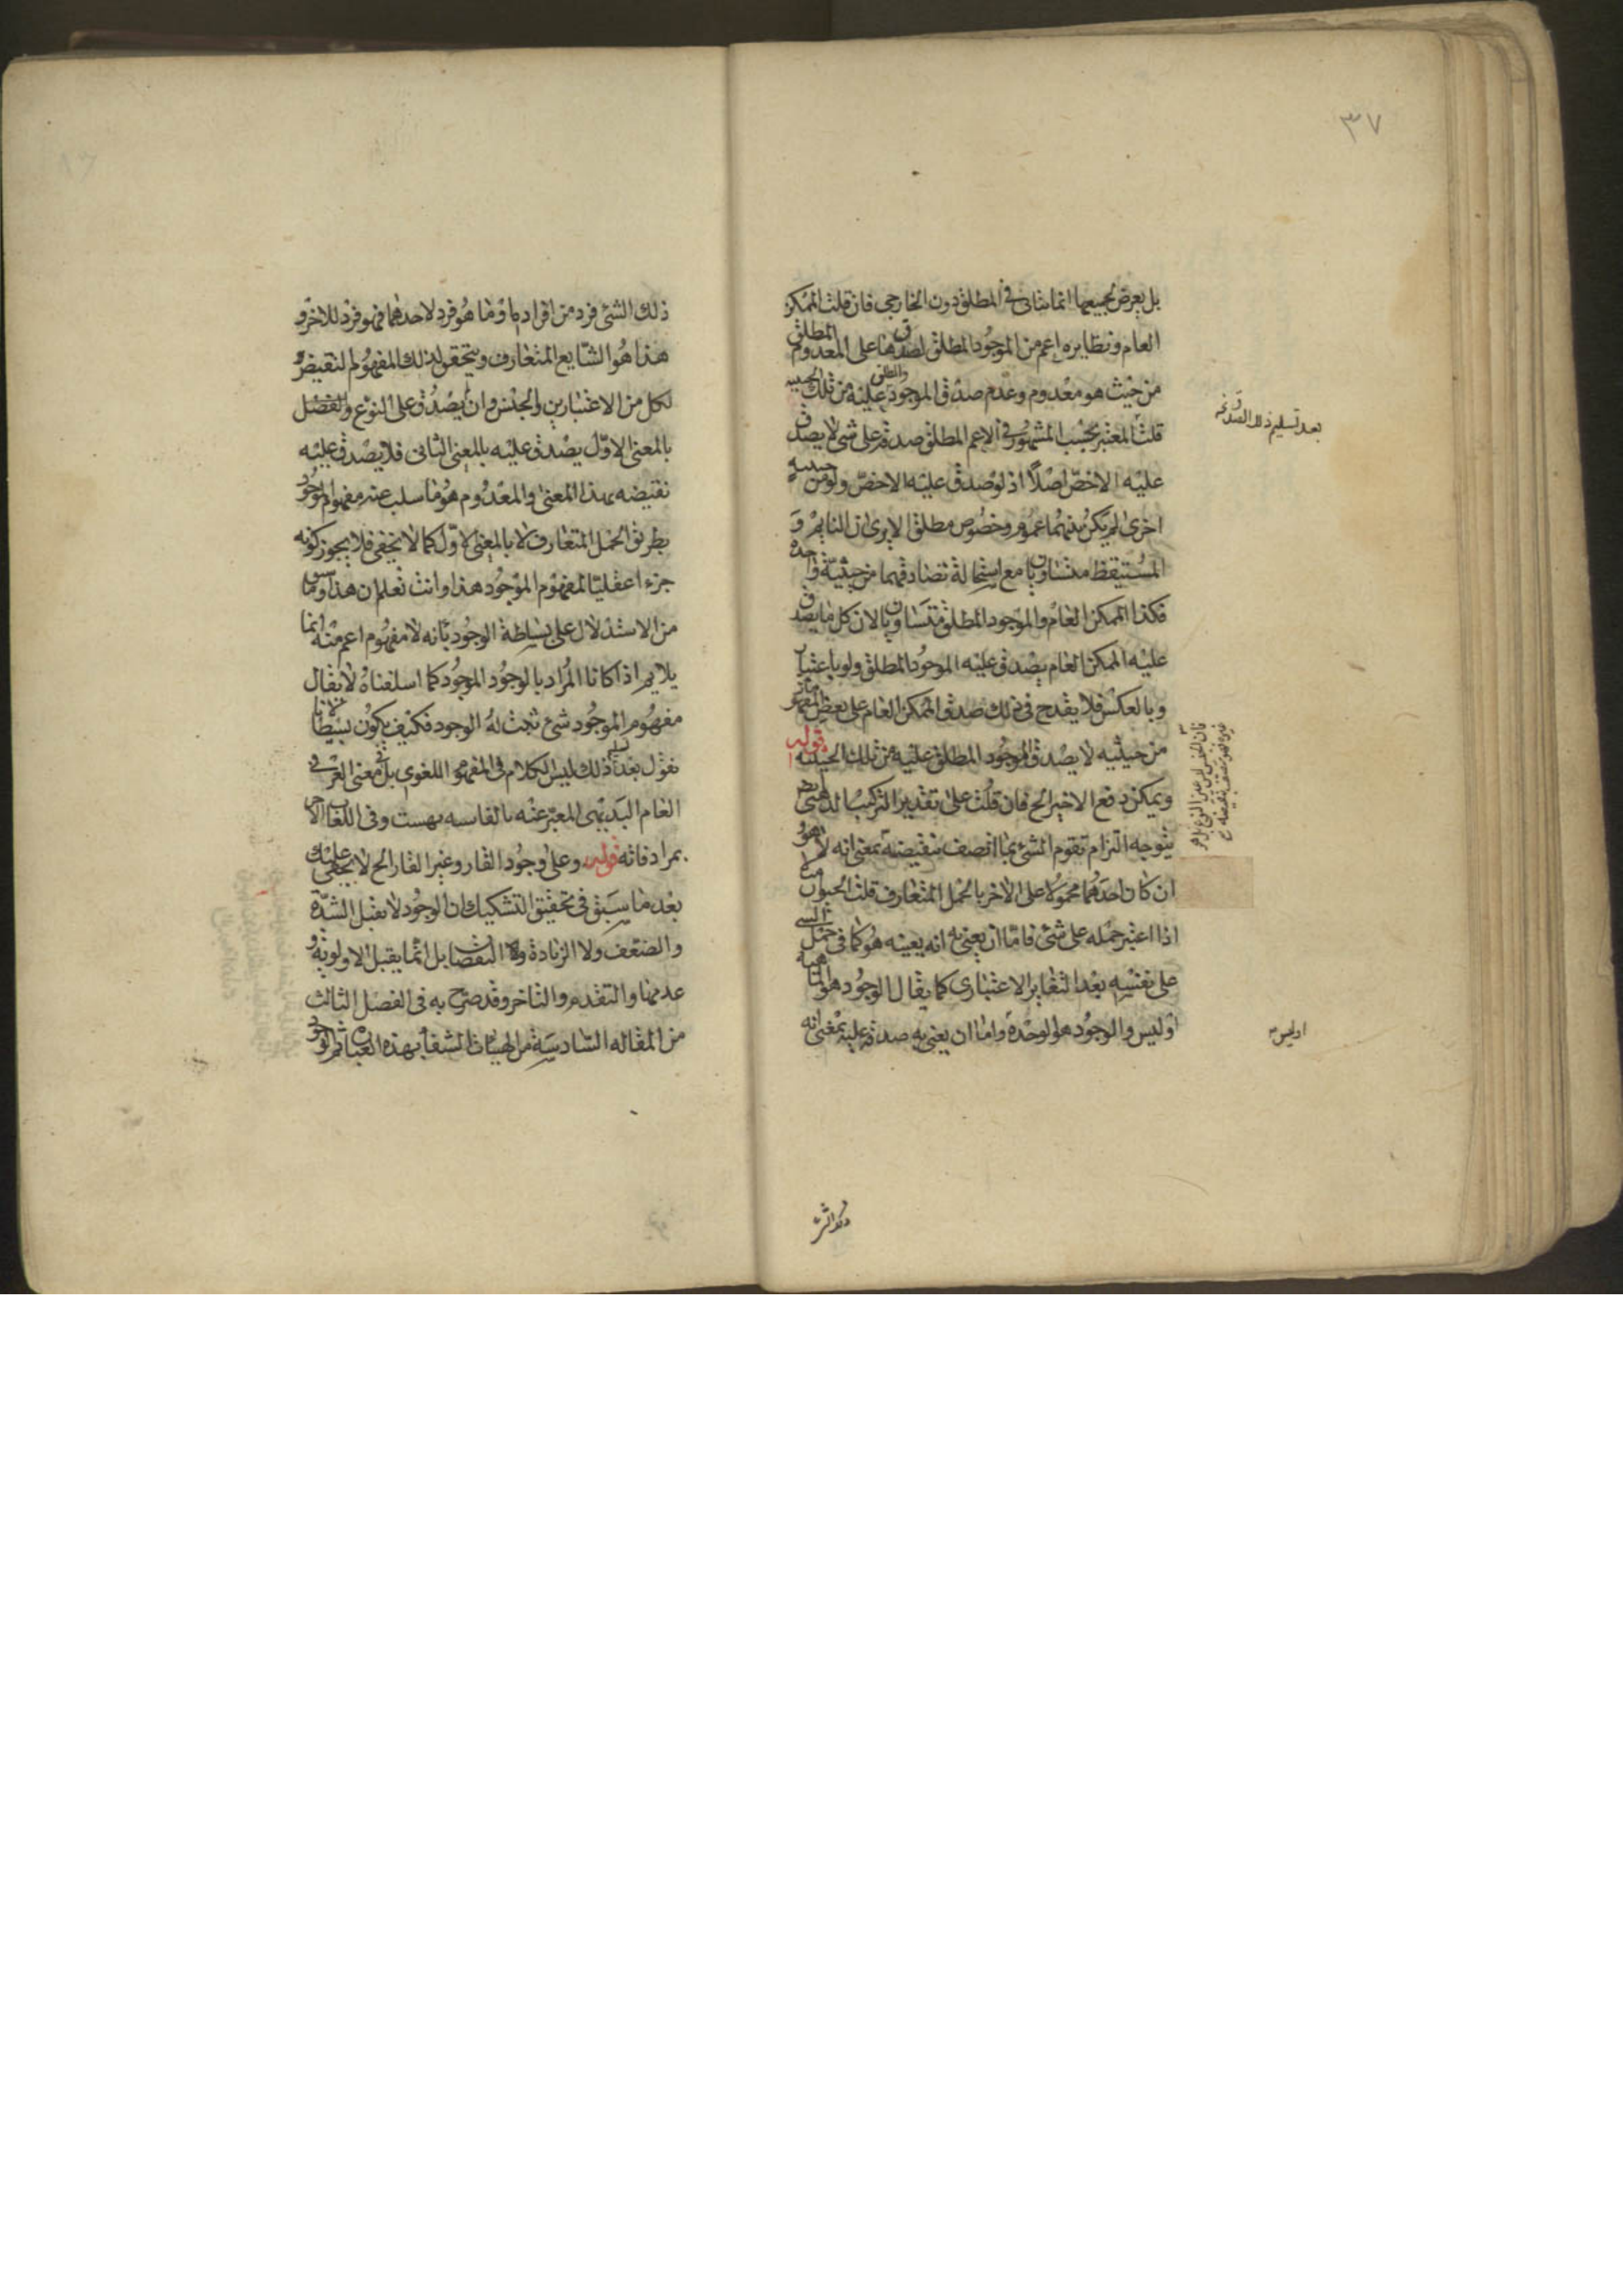 ٣٧
بل يعرض لجميعها انما يتأتى فى المطلق دون الخارجى فان قلت الممكن
العام ونظايره اعم من الموجود المطلق لصدقها على المعدوم المطلق
من حيث هو معدوم وعدم صدق الموجود المطلق عليه من تلك الحيثيه
بعد تسليم ذلك الصدق
قلت المعتبر بحسب المشهور فى الاعم المطلق صدقه على شئ لا يصدق
عليه الاخصّ اصلاً اذ لو صدق عليه الاخصّ ولو من حيثيه
اخرى لم يكن بينهما عموم وخصوص مطلق الا يرى ان النايم و
المستيقظ متساويان مع استحالة تصادقهما من حيثيّة واحدة
فكذا الممكن العام والموجود المطلق متساويان لان كل ما يصدق
عليه الممكن العام يصدق عليه الموجود المطلق ولو باعتبار
وبالعكس فلا يقدح فى ذلك صدق الممكن العام على بعض المفهومات
من حيثيه لا يصدق الموجود المطلق عليه من تلك الحيثيه قوله
ويمكن دفع الاخير الخ فان قلت على تقدير التركيب الذهنى
يتوجه التزام تقوم الشئ بما اتصف بنقيضه بمعنى انه لا هو
ان كان احدهما محمولا على الاخر بالحمل المتعارف قلت
اذا اعتبر حمله على شئ فامّا ان يعنى به انه بعينه هو كما فى حمل الشئ
على نفسه بعد التغاير الاعتبارى كما يقال الوجود هو الماهيه
او ليس والوجود هو الوحدة واما ان يعنى به صدقه عليه بمعنى انه
او ليس
ذلك الشئ فرد من افراده او ما هو فرد لاحدهما فهو فرد للاخر و
هذا هو الشّايع المتعارف ويتحقق لذلك المفهوم لنقيض
لكل من الاعتبارين والجنس وان يصدق على النوع والفصل
بالمعنى الاوّل يصدق عليه بالمعنى الثانى فلا يصدق عليه
نقيضه بهذا المعنى والمعدوم هو ما سلب عنه مفهوم الموجود
بطريق الحمل المتعارف لا بالمعنى الاوّل كما لا يخفى فلا يجوز كونه
جزءا عقليّا لمفهوم الموجود هذا وانت تعلم ان هذا وما سبق
من الاستدلال على بساطة الوجود بّانه لا مفهوم اعم منه انما
يلايم اذا كانا المراد بالوجود الموجود كما اسلفناه لا يقال
مفهوم الموجود شئ ثبت له الوجود فكيف يكون بسيطا لانا
نقول بعد ذلك ليس الكلام فى المفهوم اللغوى بل فى معنى
العام البديهى المعبّر عنه بالفارسيه بهست وفى اللغات الاخر
بمرادفاته قوله وعلى وجود القار وغير القار الخ لا يخفى عليك
بعد ما سبق فى تحقيق التشكيك ان الوجود لا يقبل الشدّة
والضعف ولا الزيادة ولا النقصان بل انما يقبل الاولويه و
عدمها والتقدم والتاخر وقد صرّح به فى الفصل الثالث
من المقاله السّادسة من الهيات الشفاء بهذه العبارة